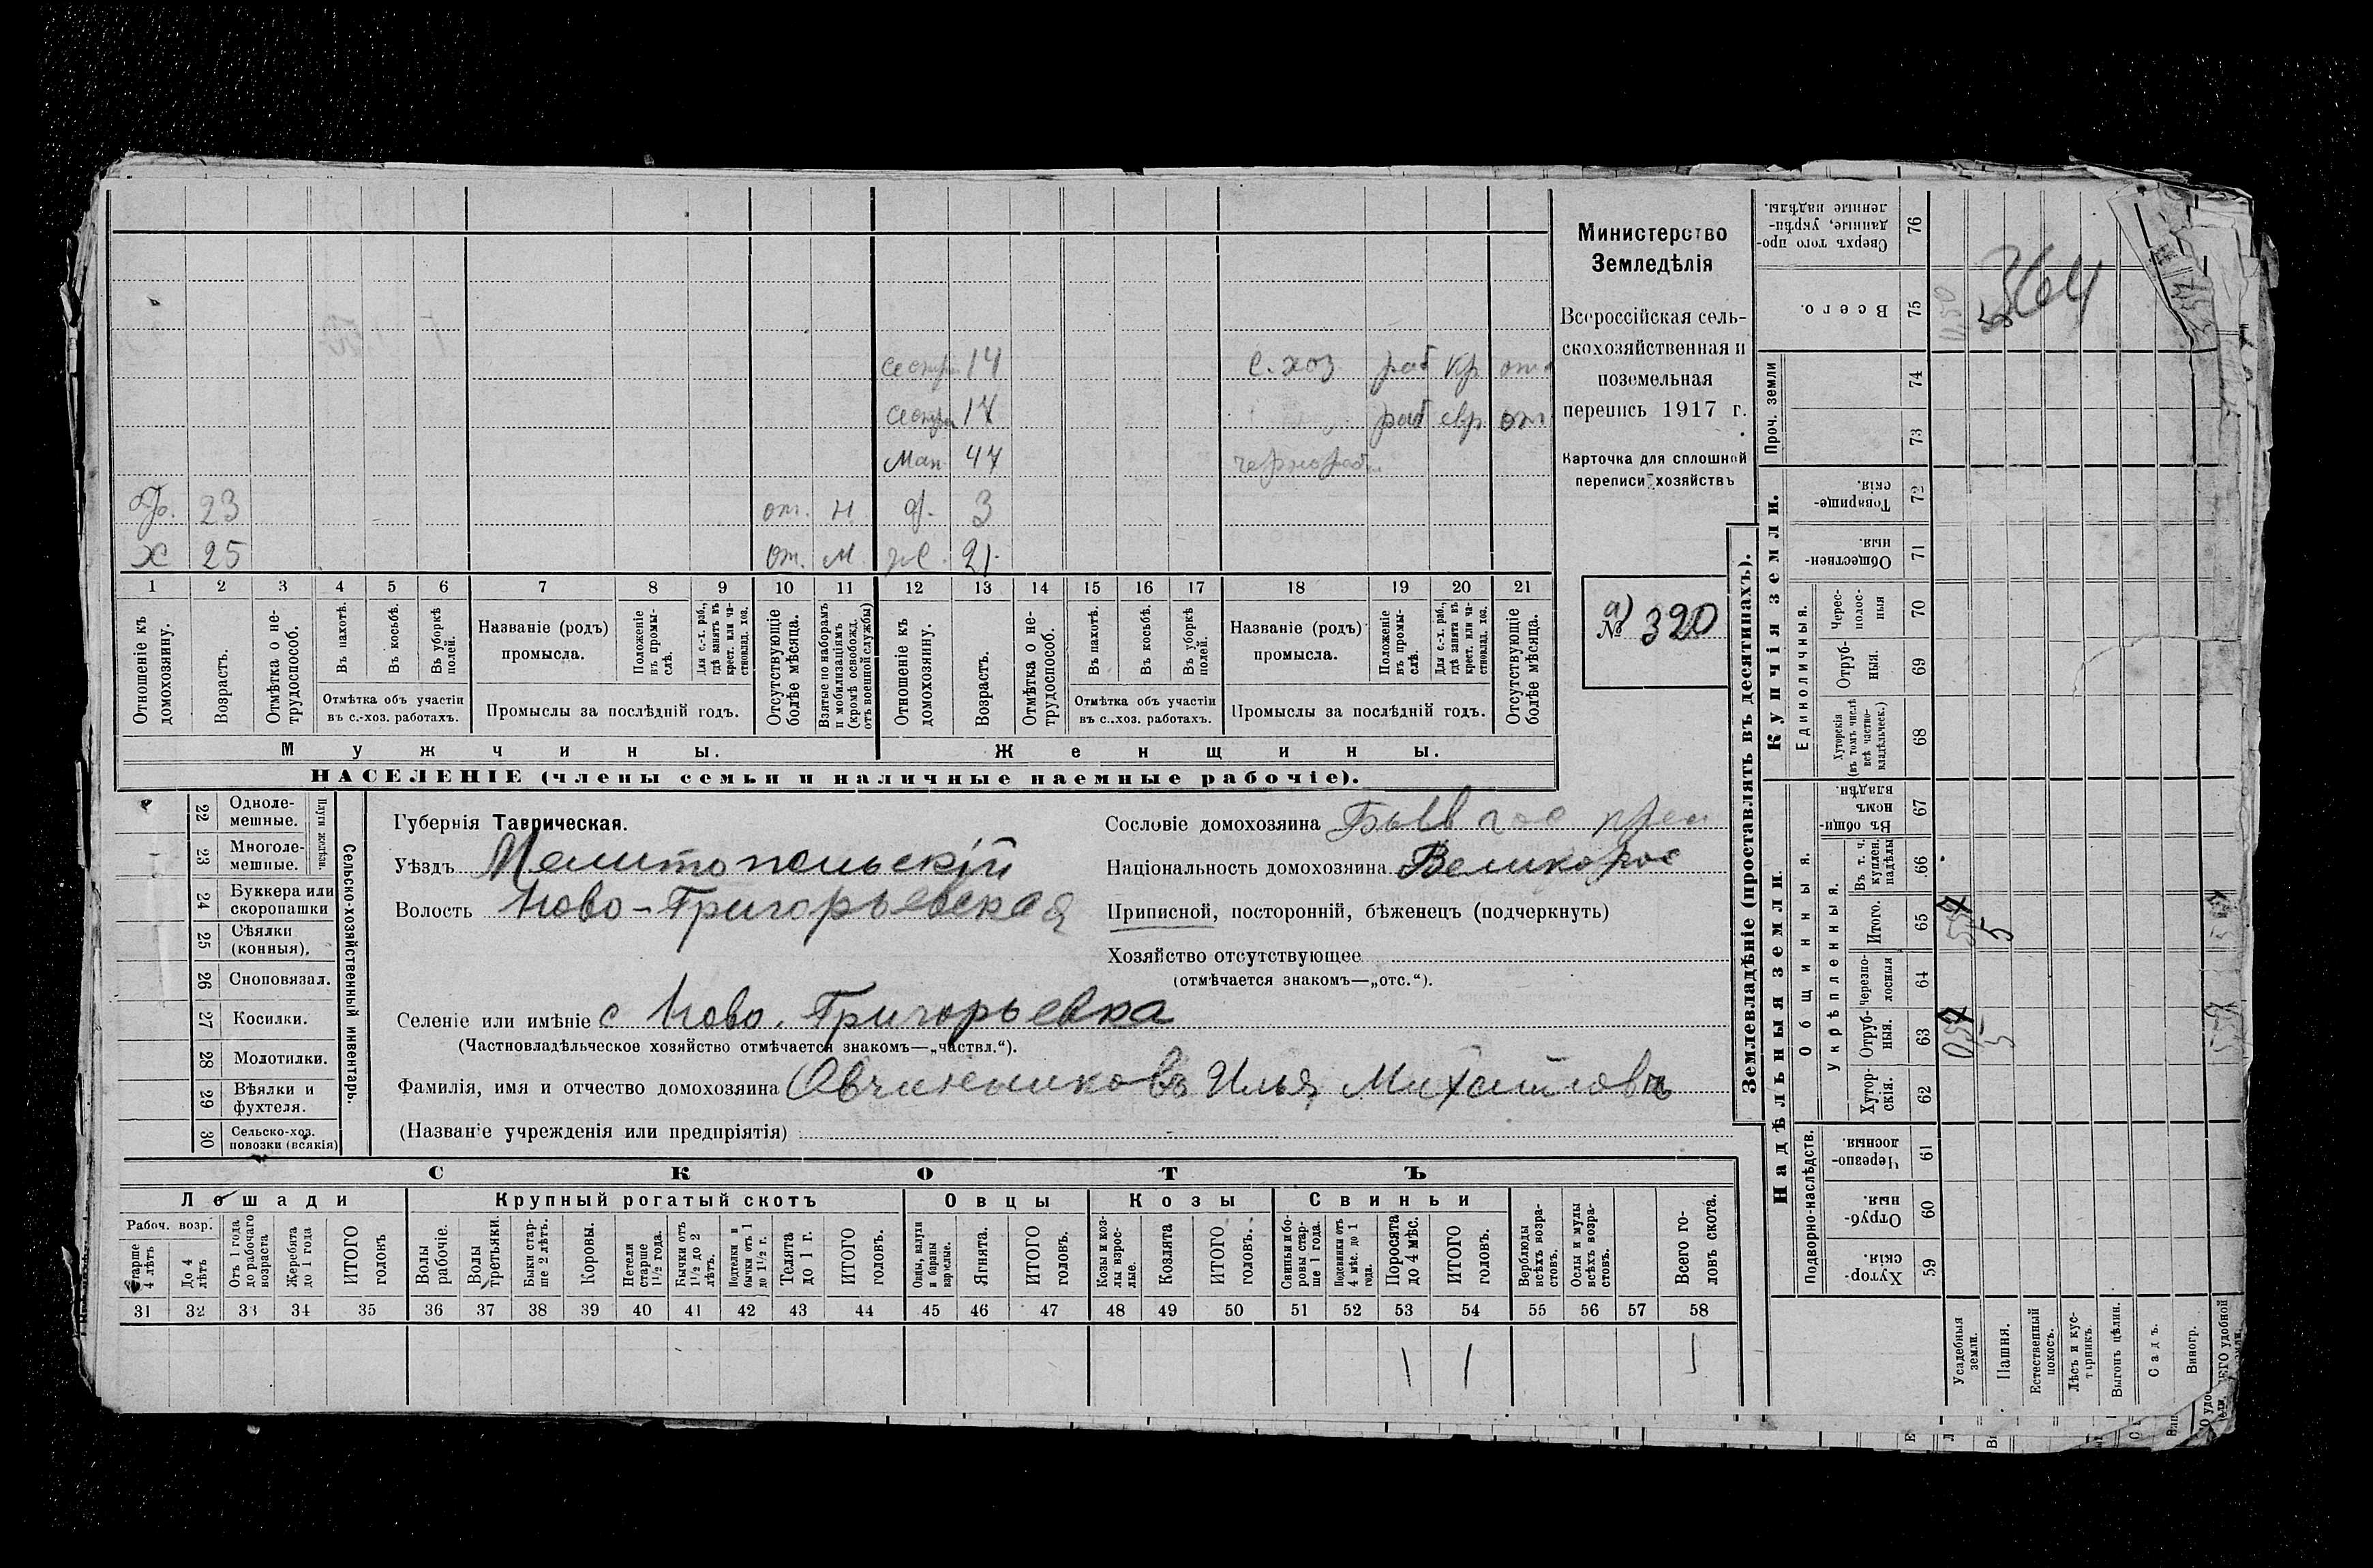 сестра 14 С. хоз раб кр от
сестра 17 раб евр от
Мап 47 чернораб.
бр. 23 от. н д. 3
х 25 от. м ж. 21.
1 2 3 4 5 6 7 8 9 10 11 12 13 14 15 16 17 18 19 20 21
Отношеніе къ домохозяину.
Возрастъ.
Отмѣтка о не-трудоспособ.
Въ пахотѣ.
Въ косьбѣ.
Въ уборкѣ полей.
Отмѣтка объ участіи
въ с.-хоз. работахъ.
Названіе (родъ)
промысла.
Положеніе въ промы-слѣ.
Для с.-х. раб., гдѣ занятъ въ крест. или ча-стновлад. хоз.
Промыслы за послѣдній годъ.
Отсутствующіе болѣе мѣсяца.
Взятые по наборамъ и мобилизаціямъ (кромѣ освобожд. отъ военной службы)
Отношеніе къ домохозяину.
Возрастъ.
Отмѣтка о не-трудоспособ.
Въ пахотѣ.
Въ косьбѣ.
Въ уборкѣ полей.
Отмѣтка объ участіи
въ с..хоз. работахъ.
Названіе (родъ)
промысла.
Положеніе въ промы-слѣ.
Для с.-х. раб., гдѣ занята въ крест. или ча-стновлад. хоз.
Промыслы за послѣдній годъ.
Отсутствующіе болѣе мѣсяца.
Мужчины.
Женщины.
НАСЕЛЕНІЕ (члены семьи и наличные наемные рабочіе).
Министерство
Земледѣлія
Всероссійская сель-
скохозяйственная и
поземельная
перепись 1917 г.
Карточка для сплошной
переписи хозяйствъ
а)
№ 320
22 Одноле-мешные.
23 Многоле-мешные.
Плуги желѣзн.
24 Буккера или скоропашки
25 Сѣялки (конныя).
26 Сноповязал.
27 Косилки.
28 Молотилки.
29 Вѣялки и фухтеля.
30 Сельско-хоз. повозки (всякія)
Сельско-хозяйственный инвентарь.
Губернія Таврическая.
Уѣздъ Мелитопольскій
Волость Ново-Григорьевская
Селеніе или имѣніе с Ново. Григорьевка
(Частновладѣльческое хозяйство отмѣчается знакомъ—„частвл.“).
Фамилія, имя и отчество домохозяина Овчинниковъ Илья Михайловъ
(Названіе учрежденія или предпріятія)
Сословіе домохозяина Бывгос
Національность домохозяина Великорос
Приписной, посторонній, бѣженецъ (подчеркнуть)
Хозяйство отсутствующее
(отмѣчается знакомъ—„отс.“).
СКОТЪ
Лошади
Крупный рогатый скотъ
Овцы
Козы
Свиньи
Рабоч. возр.
Старше 4 лѣтъ
До 4 лѣтъ
Отъ 1 года до рабочаго возраста
Жеребята до 1 года
ИТОГО головъ
Волы рабочіе.
Волы третьяки.
Быки стар-ше 2 лѣтъ.
Коровы.
Нетели старше 1½ года.
Бычки отъ 1½ до 2 лѣтъ.
Подтелки и бычки отъ 1 до 1½ г.
Телята до 1 г.
ИТОГО головъ.
Овцы, валухи и бараны взрослые.
Ягнята.
ИТОГО головъ.
Козы и коз-лы взрос-лые.
Козлята
ИТОГО головъ.
Свиньи и бо-ровы стар-ше 1 года.
Подсвинки отъ 4 мѣс. до 1 года.
Поросята до 4 мѣс.
ИТОГО головъ.
Верблюды всѣхъ возра-стовъ.
Ослы и мулы всѣхъ возра-стовъ.
Всего го-ловъ скота.
31 32 33 34 35 36 37 38 39 40 41 42 43 44 45 46 47 48 49 50 51 52 53 54 55 56 57 58
1 1 1
Землевладѣніе (проставлять въ десятинахъ).
Купчія земли.
Надѣльныя земли.
Сверхъ того про-данные, укрѣп-ленные надѣлы. 76
Всего. 75
364
11,50
Проч. земли
74
73
Товарище-скія. 72
Обществен-ныя. 71
Единоличныя.
Черес-полос-ныя 70
Отруб-ныя. 69
Хуторскія (въ томъ числѣ всѣ частно-владѣльческ.) 68
Общинныя.
Въ общин-номъ владѣн. 67
Укрѣпленныя.
Въ т. ч. куплен. надѣлы 66
Итого. 65
5
Черезпо-лосныя 64
Отруб-ныя. 63
5
Хутор-скія. 62
Подворно-наслѣдств.
Черезпо-лосныя. 61
Отруб-ныя. 60
Хутор-скія. 59
Усадебныя земли.
Пашня.
Естественный покосъ.
Лѣсъ и кус-тарникъ.
Выгонъ цѣлин.
Садъ.
Виногр.